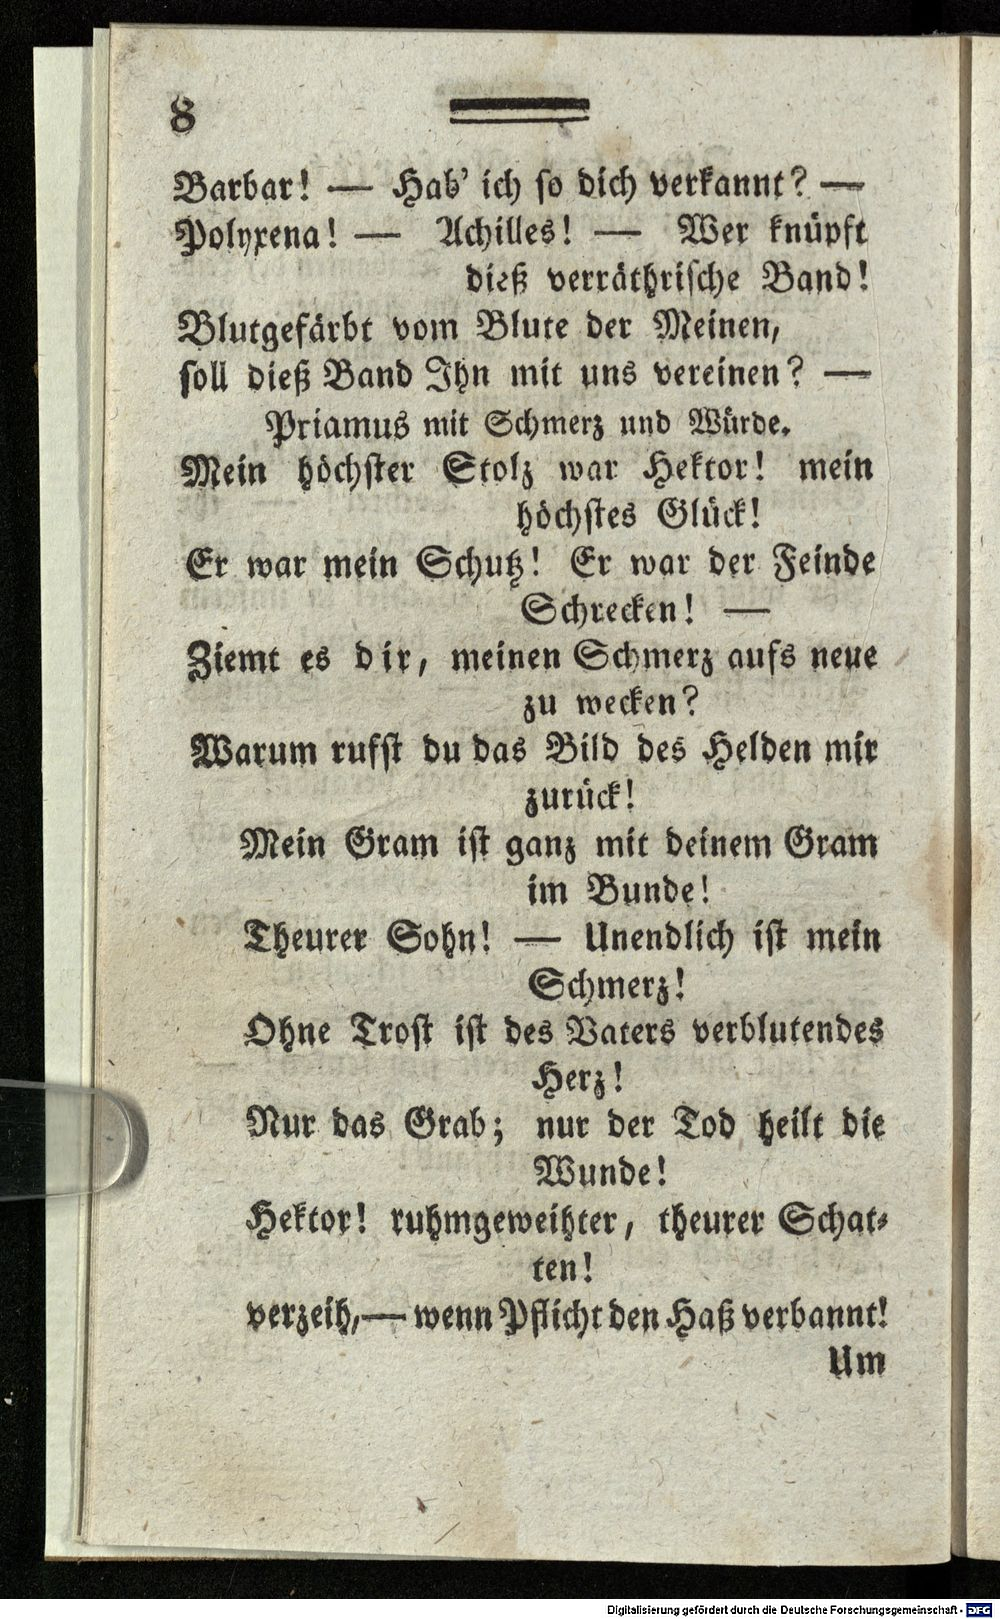 8
Barbar! — Hab' ich so dich verkannt? —
Polyxena! — Achilles! — Wer knüpft
dieß verräthrische Band!
Blutgefärbt vom Blute der Meinen,
soll dieß Band Ihn mit uns vereinen? —
Priamus mit Schmerz und Würde.
Mein höchster Stolz war Hektor! mein
höchstes Glück!
Er war mein Schutz! Er war der Feinde
Schrecken! —
Ziemt es dir, meinen Schmerz aufs neue
zu wecken?
Warum rufst du das Bild des Helden mir
zurück!
Mein Gram ist ganz mit deinem Gram
im Bunde!
Theurer Sohn! — Unendlich ist mein
Schmerz!
Ohne Trost ist des Vaters verblutendes
Herz!
Nur das Grab; nur der Tod heilt die
Wunde!
Hektor! ruhmgeweihter, theurer Schat-
ten!
verzeih,— wenn Pflicht den Haß verbannt!
Um
Digitalisierung gefördert durch die Deutsche Forschungsgemeinschaft - DFG